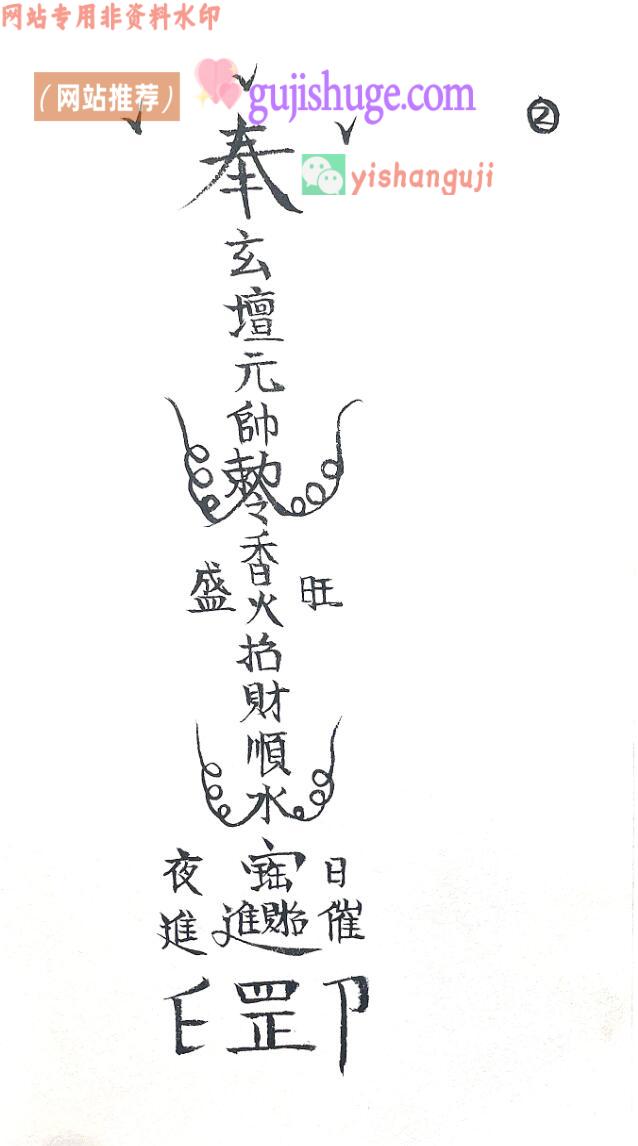 网站专用非资料水印
（网站推荐）
gujishuge.com
②
yishanguji
奉
玄壇元帥
敕令
香火招財順水
旺
盛
日催
夜進
招財進寶
罡
印